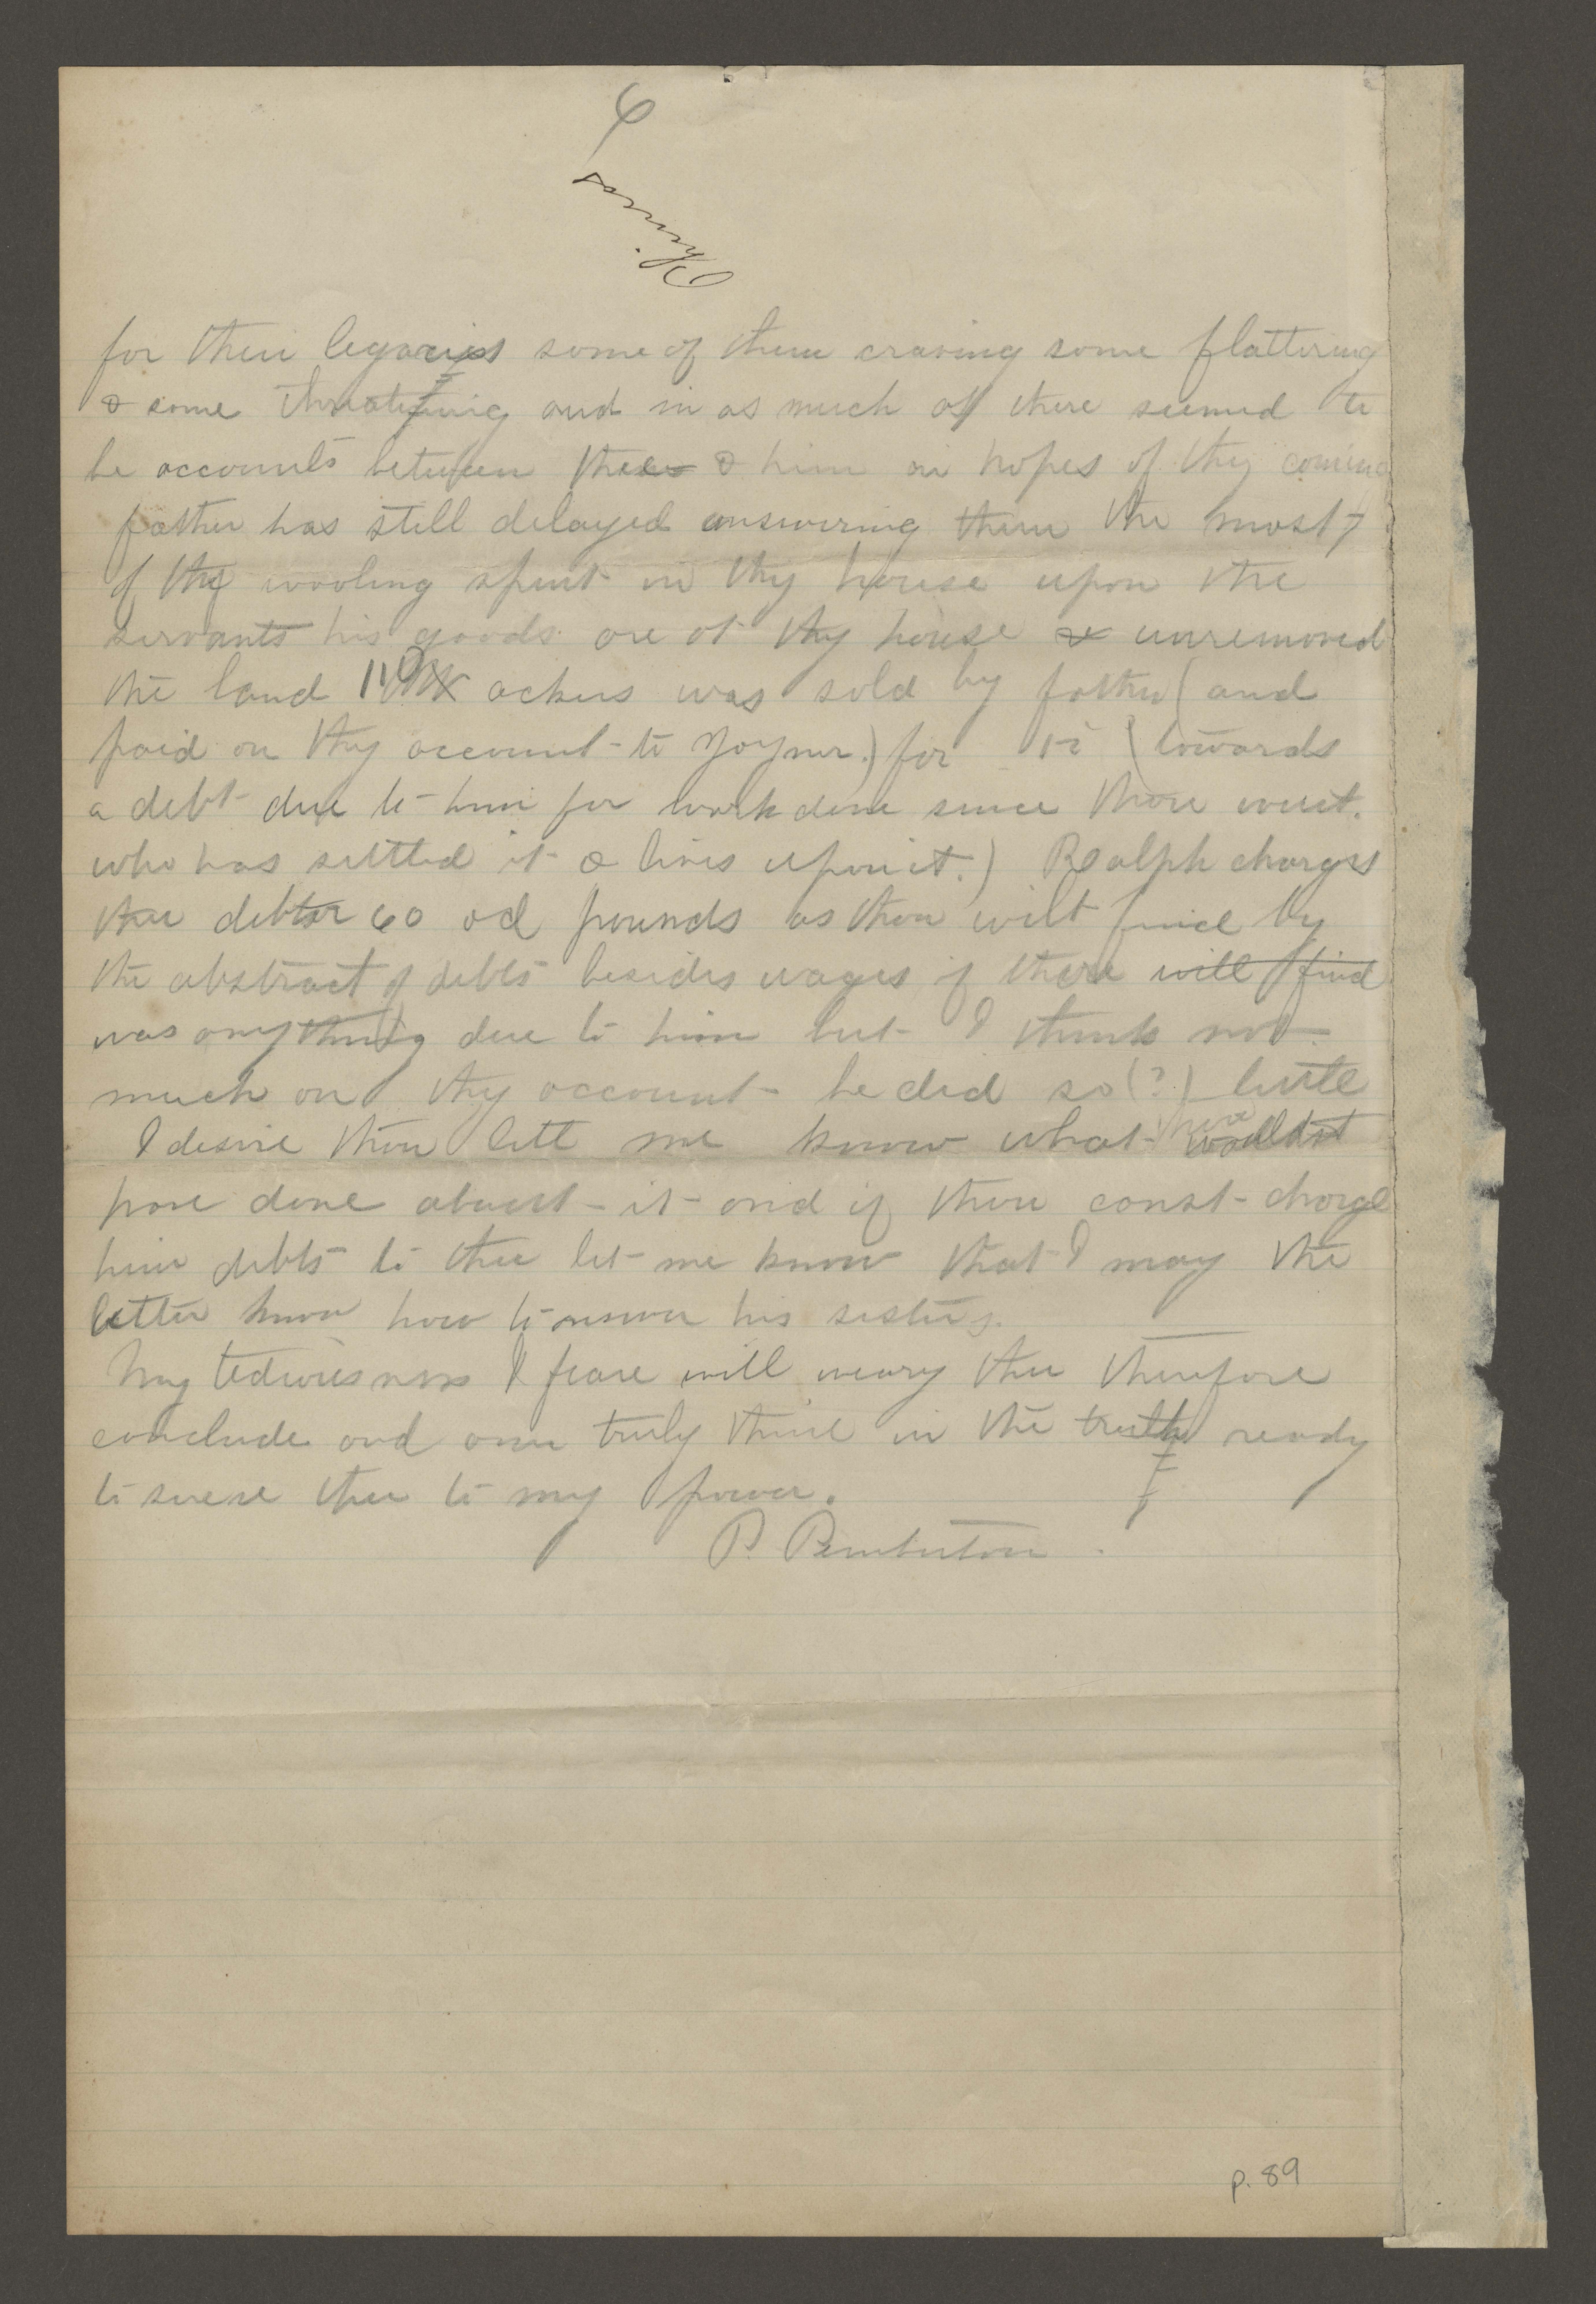 6
for their legacies some of them craving some flattering
& some threatening and in as much as there seemed to
be accounts between thee & him in hopes of thy coming
father has still delayed answering them the most
of thy wooling spent in thy house upon the
servants his goods are at thy house & unremoved
the land ackers was sold by father (and
paid on thy account to Joyner.) for (towards
a debt due to him for work done since thou went.
who has settled it & lives upon it.) Ralph charges
thee debtor 60 od pounds as thou wilt find by
the abstract of debts besides wages if there will find
was anything due to him but I think not
much on thy account he did so (?) little
I desire thou lett me know what thou wouldst
have done about it and if thou canst charge
him debts to thee let me know that I may the
better know how to answer his sisters.
My tediousness I feare will weary thee therefore
conclude and am truly thine in the truth ready
to serve thee to my power.
P. Pemberton.
p. 89